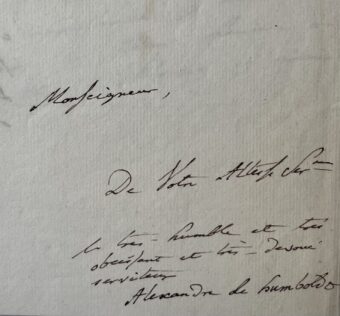 Monseigneur,
De Votre Altesse Ser^me
le très-humble et très
obeissant et très-devoué
serviteur
Alexandre de Humboldt